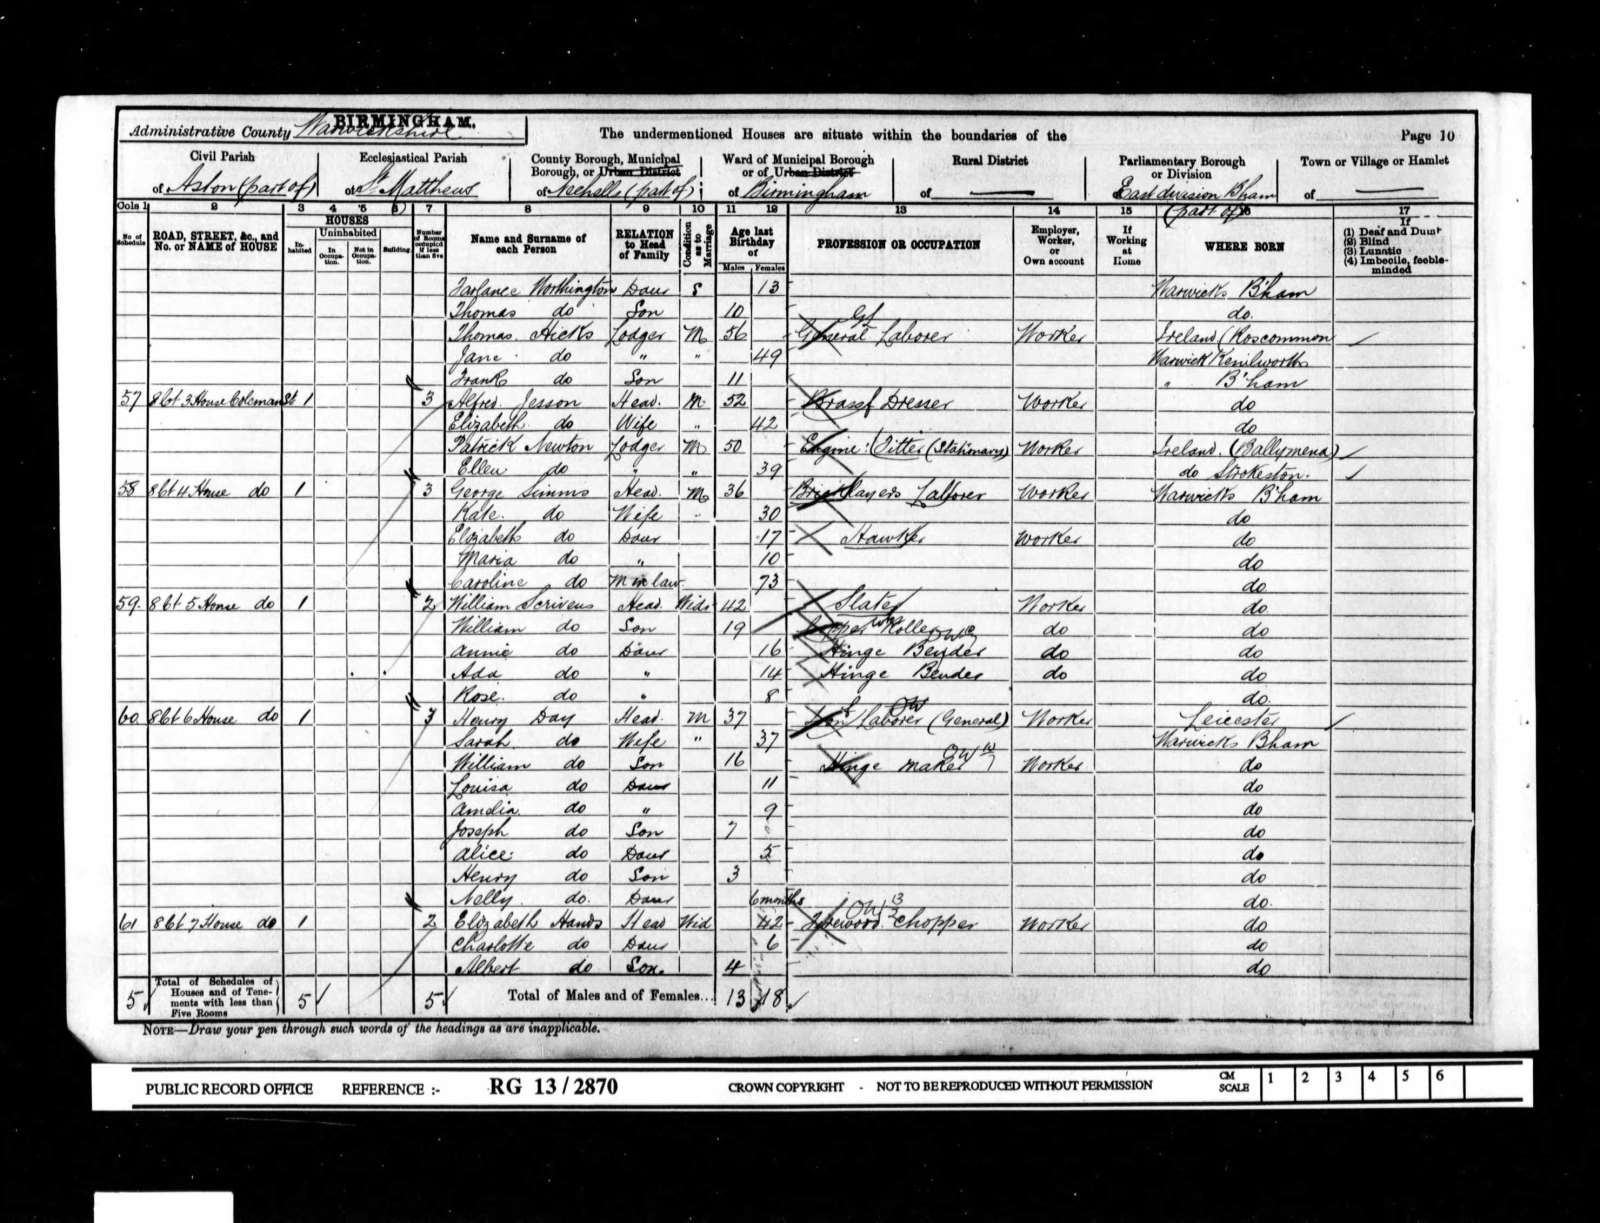 BIRMINGHAM.
Administrative County Warwickshire
The undermentioned Houses are situate within the boundaries of the
Page 10
Civil Parish
of Aston (part of)
Ecclesiastical Parish
of St Matthews
County Borough, Municipal Borough, or Urban District
of Nechells (part of)
Ward of Municipal Borough or of Urban District
of Birmingham
Rural District
of
Parliamentary Borough or Division
East division B'ham (part of)
Town or Village or Hamlet
of
Cols 1 2 3 4 5 6 7 8 9 10 11 12 13 14 15 16 17
No of Schedule
ROAD, STREET, &c., and No. or NAME of HOUSE
HOUSES
Inhabited
Uninhabited
In Occupation.
Not in Occupation.
Building
Number of Rooms occupied if less than five
Name and Surname of each Person
RELATION to Head of Family
Condition as to Marriage
Age last Birthday of
Males Females
PROFESSION OR OCCUPATION
Employer, Worker, or Own account
If Working at Home
WHERE BORN
If
(1) Deaf and Dumb
(2) Blind
(3) Lunatic
(4) Imbecile, feeble-minded
Worthington Daur S 13 Warwicks B'ham
Thomas do Son 10 do.
Thomas Hicks Lodger M 56 General Laborer Worker Ireland (Roscommon
Jane do " " 49 Warwick Kenilworth
Frank do Son 11 " B'ham
57 8 Ct 3 House Coleman St 1 3 Alfred Jesson Head M 52 Brass Dresser Worker do
Elizabeth do Wife " 42 do
Patrick Newton Lodger M 50 Engine Fitter (Stationary) Worker Ireland (Ballymena)
Ellen do " " 39 do Strokeston
58 8 Ct 4 House do 1 3 George Simms Head M 36 Bricklayers Laborer Worker Warwicks B'ham
Kate do Wife " 30 do
Elizabeth do Daur 17 Hawker Worker do
Maria do " 10 do
Caroline do M in law 73 do
59 8 Ct 5 House do 1 2 William Scrivens Head Widr 42 Slater Worker do
William do Son 19 Copper Roller do do
Annie do Daur 16 Hinge Bender do do
Ada do " 14 Hinge Bender do do
Rose do " 8 do
60 8 Ct 6 House do 1 3 Henry Day Head M 37 Laborer (General) Worker Leicester
Sarah do Wife " 37 Warwicks Bham
William do Son 16 Hinge maker Worker do
Louisa do Daur 11 do
Amelia do " 9 do
Joseph do Son 7 do
Alice do Daur 5 do
Henry do Son 3 do
Nelly do Daur 6 months do
61 8 Ct 7 House do 1 2 Elizabeth Hands Head Wid 42 Firewood Chopper Worker do
Charlotte do Daur 6 do
Albert do Son 4 do
5 Total of Schedules of Houses and of Tenements with less than Five Rooms 5 5 Total of Males and of Females... 13 18
NOTE—Draw your pen through such words of the headings as are inapplicable.
PUBLIC RECORD OFFICE REFERENCE :- RG 13 / 2870 CROWN COPYRIGHT - NOT TO BE REPRODUCED WITHOUT PERMISSION CM SCALE 1 2 3 4 5 6